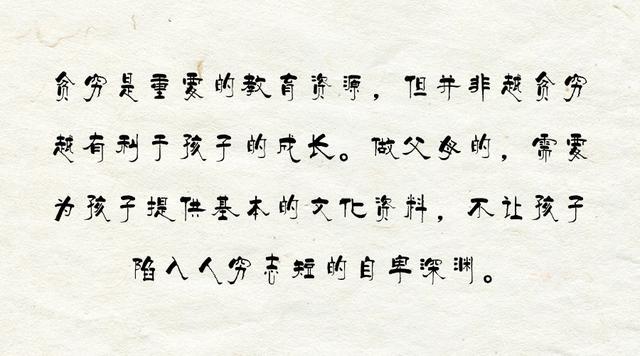 贫穷是重要的教育资源，但并非越贫穷
越有利于孩子的成长。做父母的，需要
为孩子提供基本的文化资料，不让孩子
陷入人穷志短的自卑深渊。